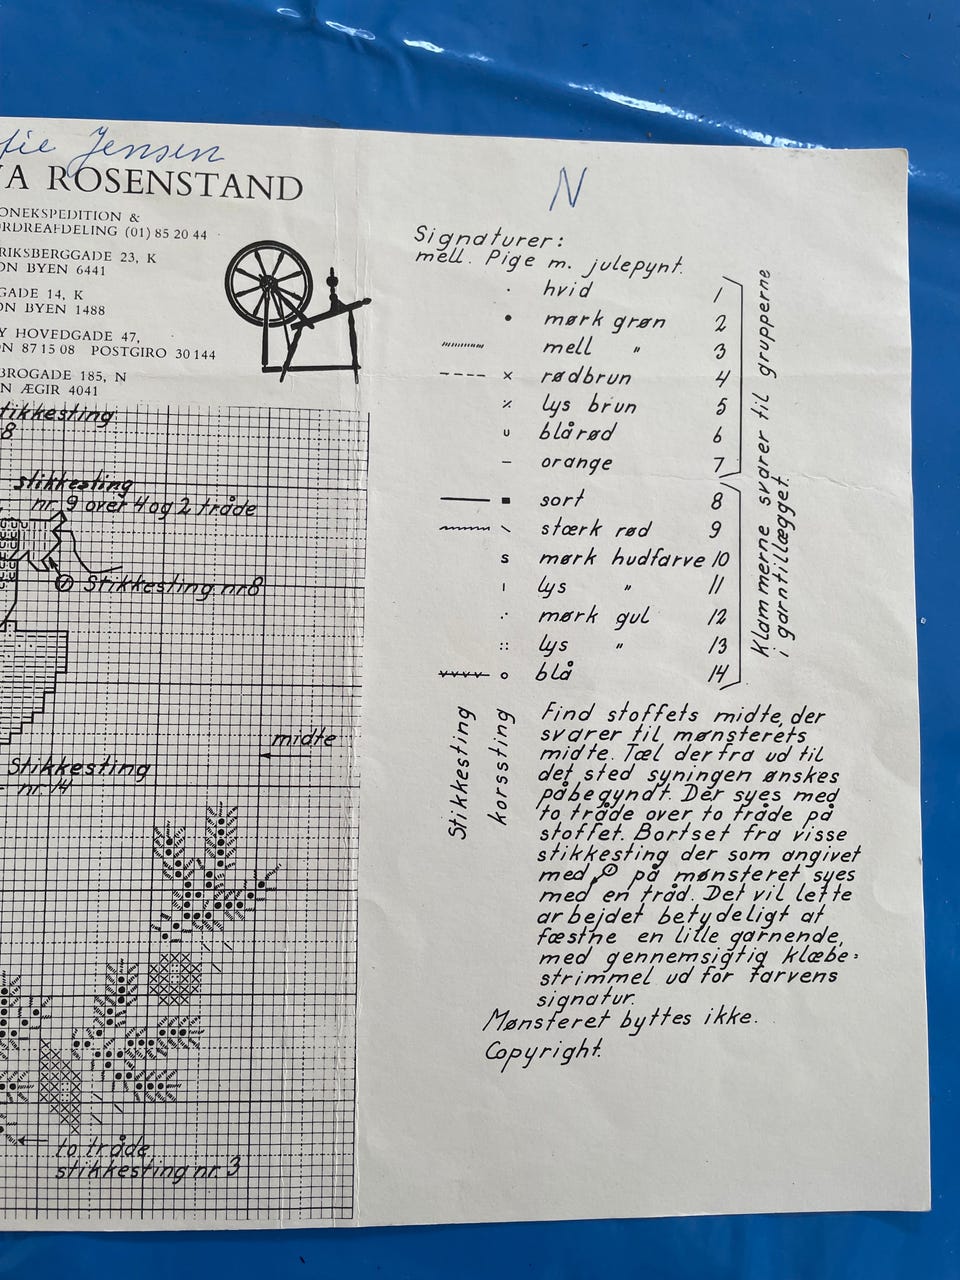 Jensen
VA ROSENSTAND
ONEKSPEDITION &
RDREAFDELING (01) 85 20 44
RIKSBERGGADE 23, K
ON BYEN 6441
GADE 14, K
ON BYEN 1488
Y HOVEDGADE 47,
N 87 15 08 POSTGIRO 30 144
BROGADE 185, N
N ÆGIR 4041
tikkesting
8
stikkesting
nr. 9 over 4 og 2 tråde
Stikkesting nr 8
midte
Stikkesting
nr. 14
to tråde
stikkesting nr. 3
N
Signaturer:
mell. Pige m. julepynt.
hvid 1
mørk grøn 2
mell " 3
rødbrun 4
lys brun 5
blårød 6
orange 7
sort 8
stærk rød 9
mørk hudfarve 10
lys " 11
mørk gul 12
lys " 13
blå 14
Klammerne svarer til grupperne
i garntillægget.
Stikkesting
korssting
Find stoffets midte, der
svarer til mønsterets
midte. Tæl derfra ud til
det sted syningen ønskes
påbegyndt. Der syes med
to tråde over to tråde på
stoffet. Bortset fra visse
stikkesting der som angivet
med på mønsteret syes
med en tråd. Det vil lette
arbejdet betydeligt at
fæstne en lille garnende,
med gennemsigtig klæbe=
strimmel ud for farvens
signatur.
Mønsteret byttes ikke.
Copyright.